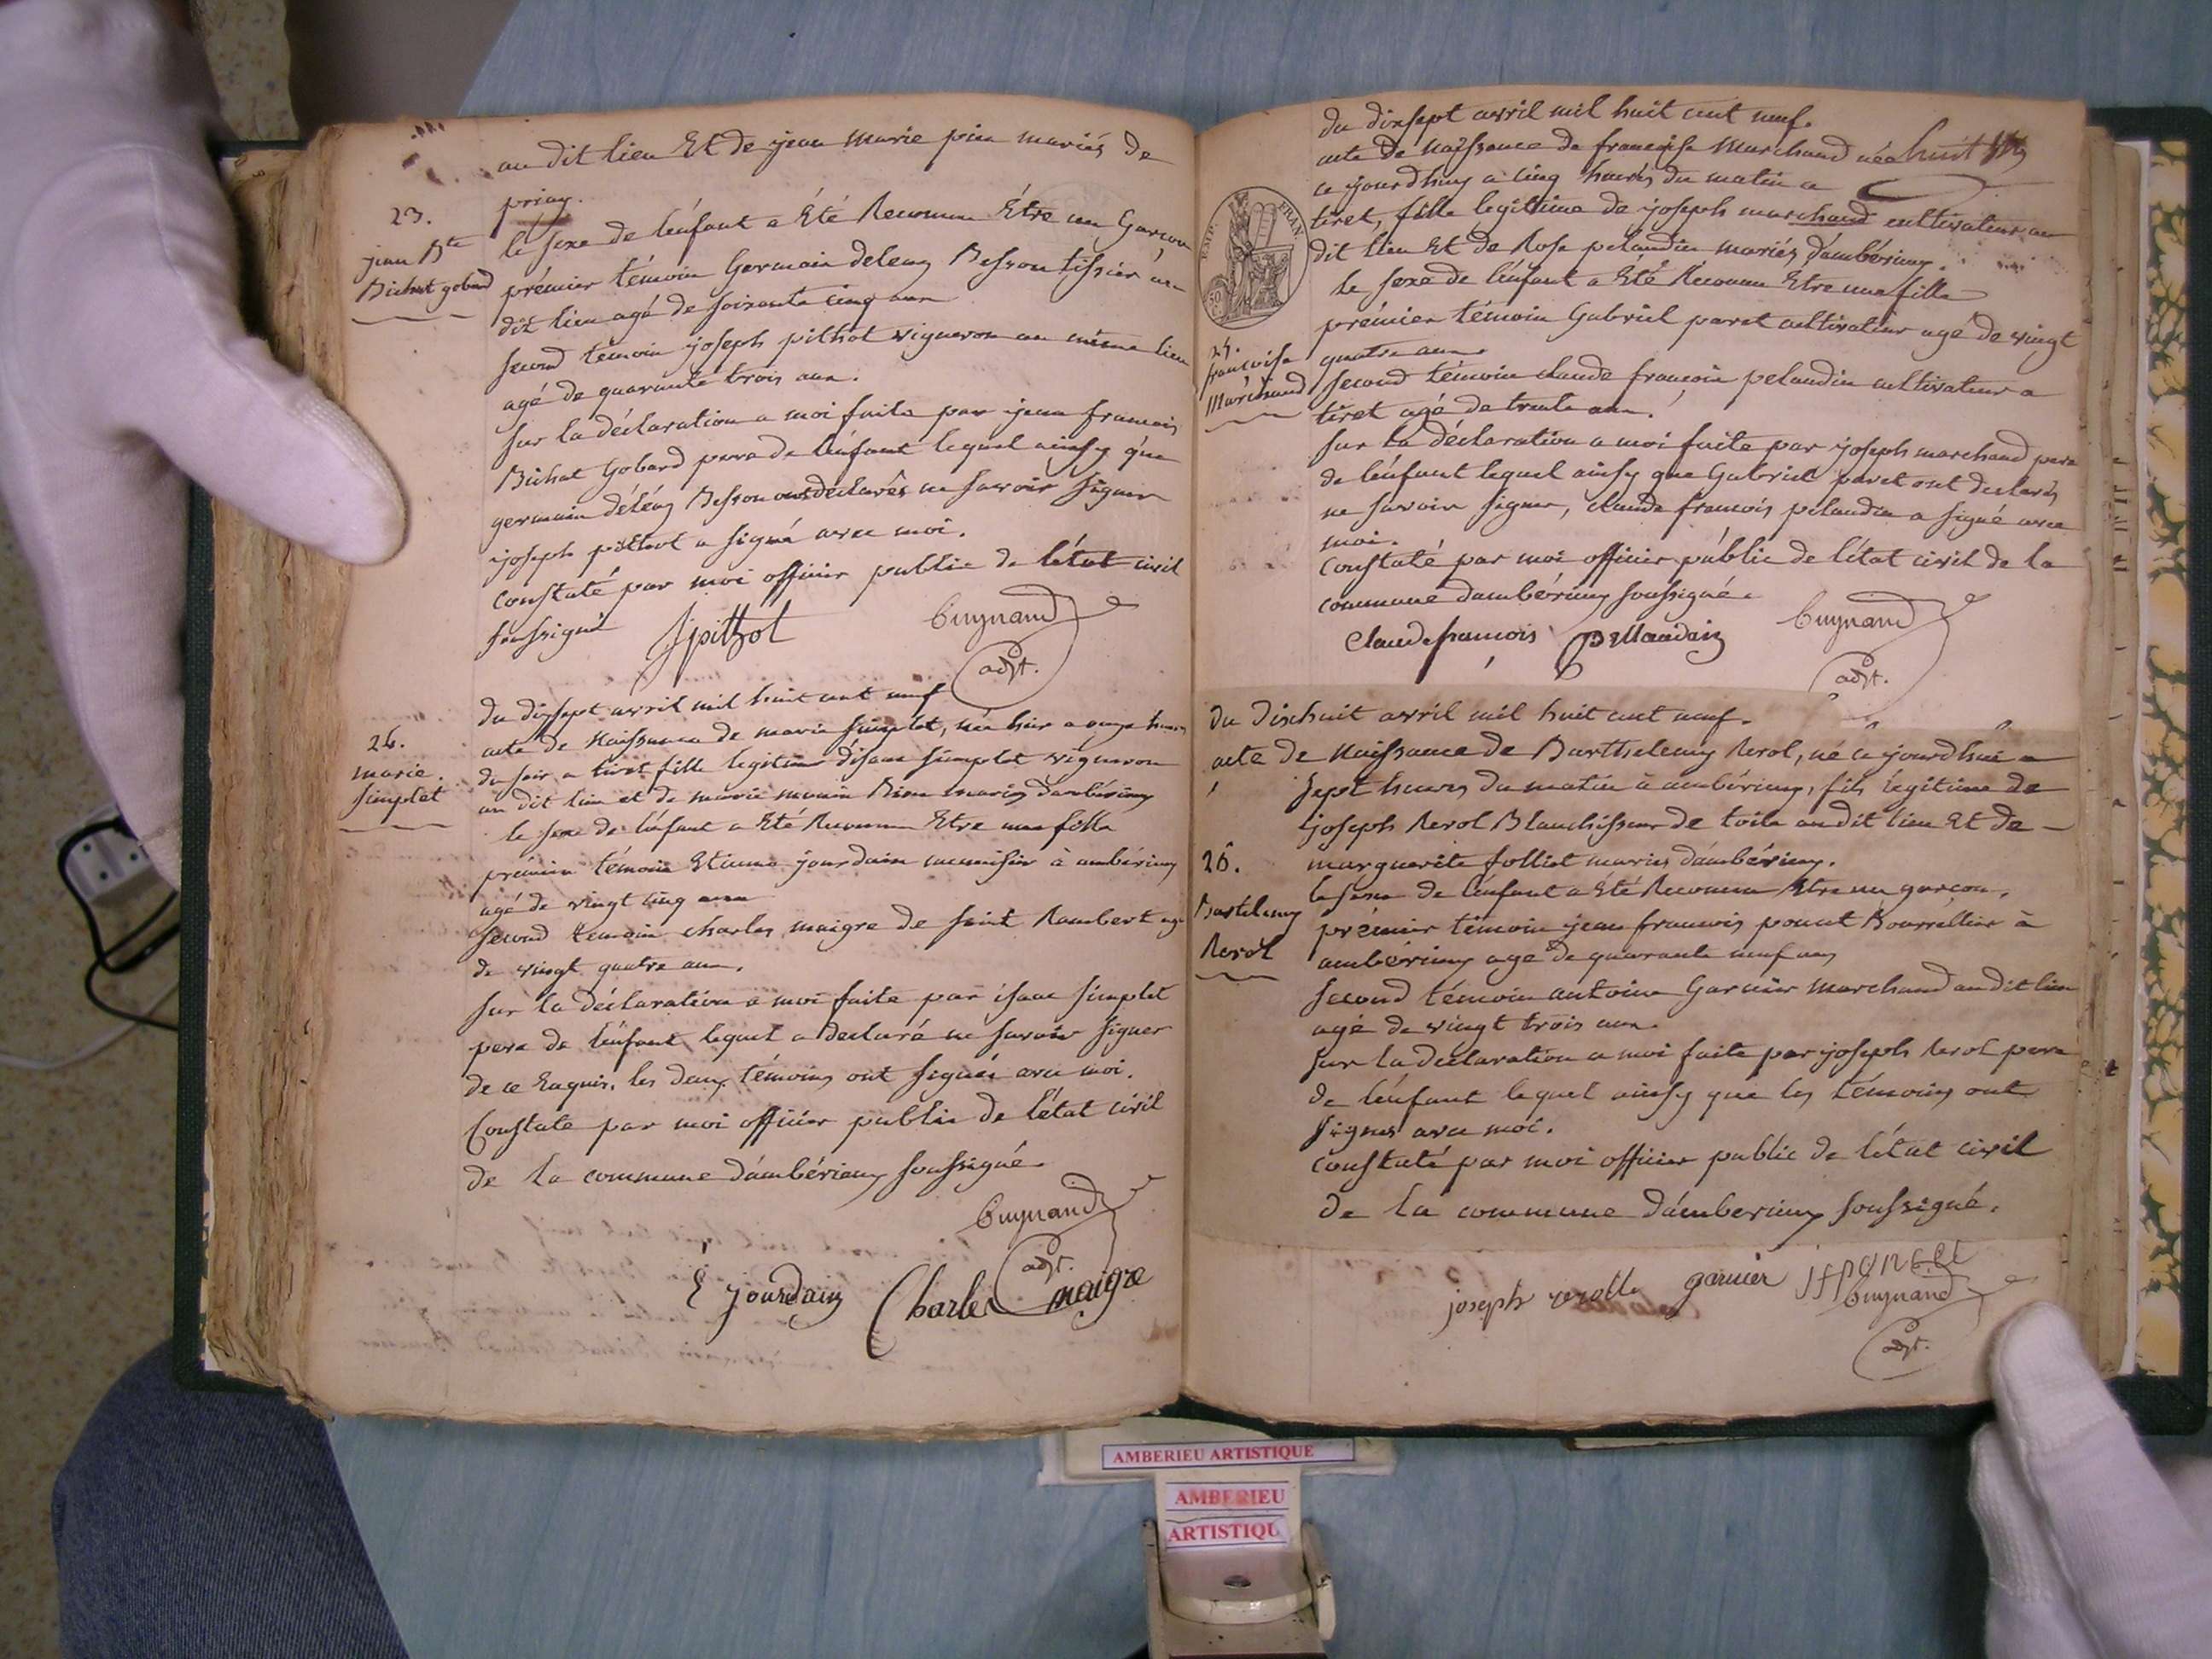 au dit lieu Et de jean Marie pin mariés de
priay.
23.
jean Bte
Bichat gobard
le sexe de lénfant a Eté Reconnu Être un Garçon
prémier témoin Germain deleaz Besson tissier au
dit lieu agé de soixante cinq ans
second témoin joseph pithot vigneron au même lieu
agé de quarante trois ans.
sur la déclaration a moi faite par jean francois
Bichat Gobard pere de lénfant lequel ainsy que
germain déléaz Besson ont déclarés ne savoir signer
joseph pithot a signé avec moi.
constaté par moi officier public de létat civil
soussigné
Jpithot
Guynand
adjt.
du dixsept avril mil huit cent neuf
24.
marie
simplet
acte de Naissance de marie simplet, née hier a onze heures
du soir a tiret fille legitime disaac simplet vigneron
au dit lieu et de marie mariés dambérieux
le sexe de lénfant a Eté Reconnu Etre une fille
prémier témoin Etienne jourdain menuisier à ambérieux
agé de vingt cinq ans
second temoin charles maigre de saint Rambert agé
de vingt quatre ans.
sur la déclaration a moi faite par isaac simplet
pere de lénfant lequel a declaré ne savoir signer
de ce Enquis, les deux témoins ont signés avec moi.
Constaté par moi officier public de létat civil
de la commune dámbérieux soussigné
Guynand
adjt.
E jourdain
Charles maigre
du dixsept avril mil huit cent neuf.
acte de Naissance de francoise Marchand née huit
ce jourdhuy a cinq heures du matin a
tiret, fille legitime de joseph marchand cultivateur au
dit lieu Et de Rose pelaudin mariés dámbérieux.
EMP. FRAN.
le sexe de lénfant a Eté Reconnu Etre une fille
prémier témoin Gabriel paret cultivateur agé de vingt
quatre ans
francoise
Márchand
second témoin claude francois pelaudin cultivateur a
tiret agé de trente ans.
sur la déclaration a moi faite par joseph marchand pere
de lénfant lequel ainsy que Gabriel paret ont declarés
ne savoir signer, claude francois pelaudin a signé avec
moi.
constaté par moi officier public de létat civil de la
commune dambérieux soussigné.
Claude francois pellaudain
Guynand
adjt.
du dixhuit avril mil huit cent neuf.
acte de Naissance de Barthelemy Rerol, né ce jourdhui a
sept heures du matin à ambérieux, fils légitime de
joseph Rerol Blanchisseur de toile au dit lieu Et de
26.
Bartelemy
Rerol
marguerite folliet mariés dámbérieux.
le sexe de lénfant a Eté Reconnu Etre un garçon.
prémier témoin jean francois poncet Bourrellier à
ambérieux agé de quarante neuf ans
second témoin antoine Garnier marchand au dit lieu
agé de vingt trois ans.
sur la declaration a moi faite par joseph Rerol pere
de lénfant lequel ainsy que les témoins ont
signés avec moi.
constaté par moi officier public de létat civil
de la commune dámberieux soussigné.
joseph rerolle garnier jfponcet
Guynand
adjt.
AMBERIEU ARTISTIQUE
AMBERIEU
ARTISTIQU